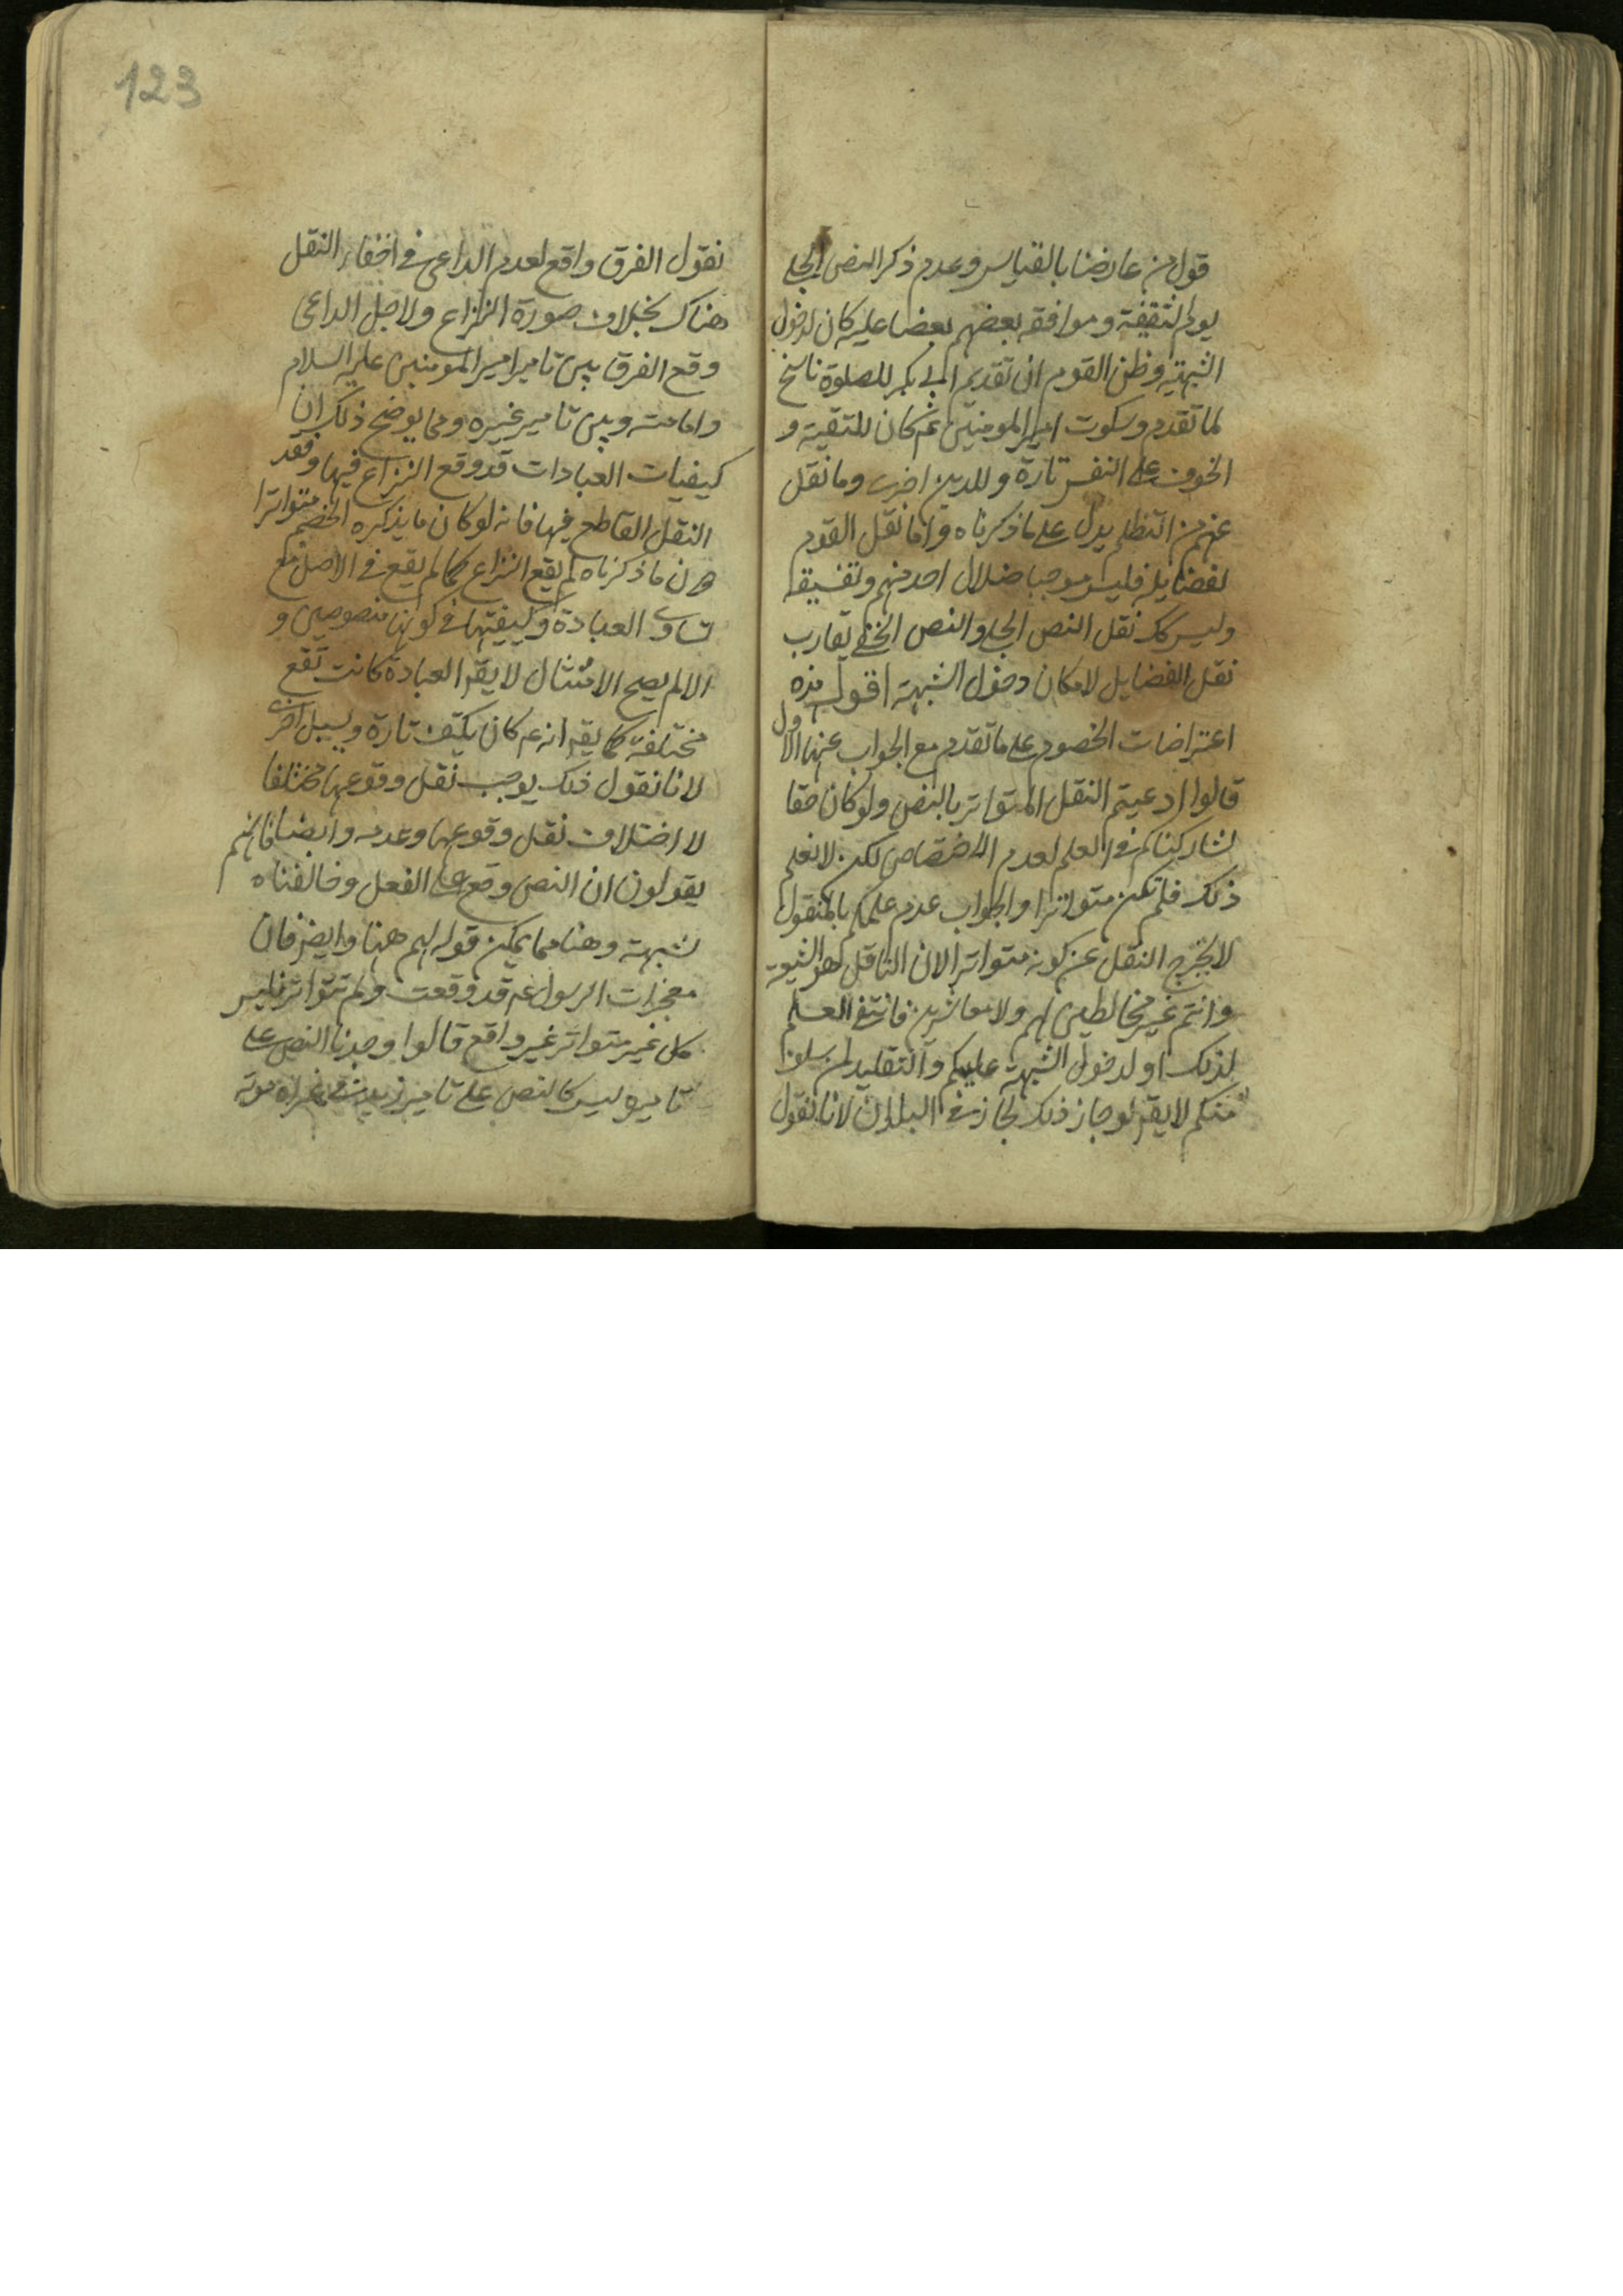 قول من عارضنا بالقياس وعدم ذكر النص الجلي
يوم الثقيفة وموافقة بعضهم بعضا عليه كان لدخول
الشبهة وظن القوم ان تقديم ابي بكر للصلوة ناسخ
لما تقدم وسكوت امير المومنين عم كان للتقية و
الخوف على النفس تارة وللدين اخرى وما نقل
عنهم من التظلم يدل على ما ذكرناه واما نقل القوم
لفضايله فليس موجبا ضلال احد منهم وتفسيقه
وليس كك نقل النص الجلي والنص الخفي يقارب
نقل الفضايل لامكان دخول الشبهة اقول هذه
اعتراضات الخصوم على ما تقدم مع الجواب عنها الاول
قالوا ادعيتم النقل المتواتر بالنص ولو كان حقا
لشاركناكم في العلم لعدم الاختصاص لكن لا نعلم
ذلك فلم تكن متواترا والجواب عدم علمكم بالمنقول
لا يخرج النقل عن كونه متواترا لان الناقل هو الشيعة
وانتم غير مخالطين لهم ولا معاشرين فانتفى العلم
لذلك او لدخول الشبهة عليكم والتقليد لمن سلف
منكم لا يقر لو جاز ذلك لجاز في البلدان لانا نقول
123
نقول الفرق واقع لعدم الداعي في اخفاء النقل
هناك بخلاف صورة النزاع ولاجل الداعي
وقع الفرق بين تامير امير المومنين عليه السلام
وامامته وبين تامير غيره ومما يوضح ذلك ان
كيفيات العبادات قد وقع النزاع فيها وفقد
النقل القاطع فيها فانه لو كان ما يذكره الخصم متواترا
ما ذكرناه لم يقع النزاع كما لم يقع في الاصل مع
تساوى العبادة وكيفيتها في كونها منصوصين و
الا لم يصح الامتثال لا يقر العبادة كانت تقع
مختلفة كما يقر انه عم كان يكتف تارة ويسبل اخرى
لانا نقول ذلك يوجب نقل وقوعها مختلفا
لا اختلاف نقل وقوعها وعدمه وايضا فانهم
يقولون ان النص وقع على الفعل وخالفناه
لشبهة وهنا مما يمكن قوله لهم هنا وايضر فان
معجزات الرسول عم قد وقعت ولم تتواتر فليس
كل غير متواتر غير واقع قالوا وجدنا النص على
تاميره ليس كالنص على تامير زيد في غزاه موته